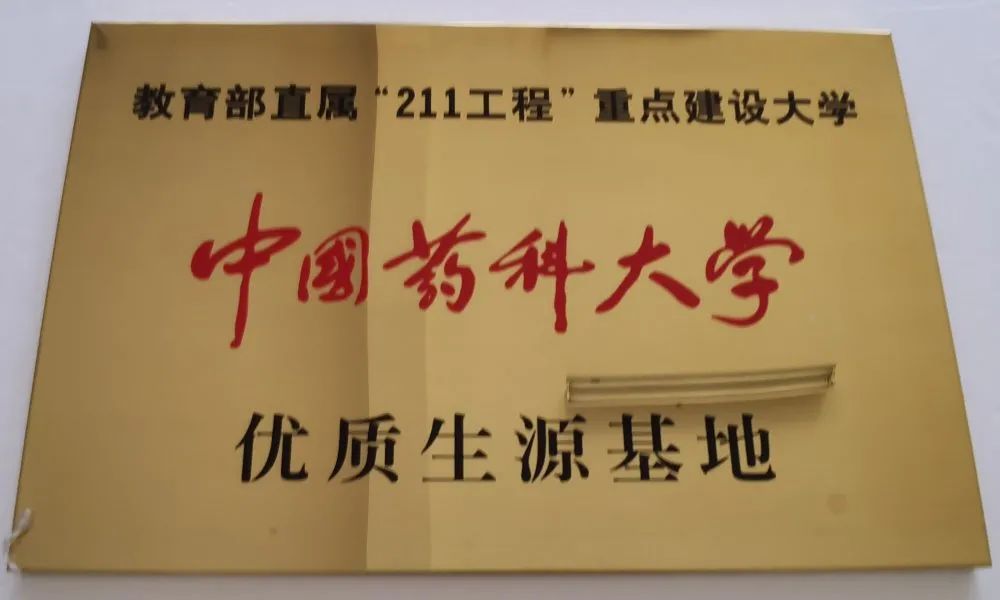 教育部直属“211工程”重点建设大学
中国药科大学
优质生源基地